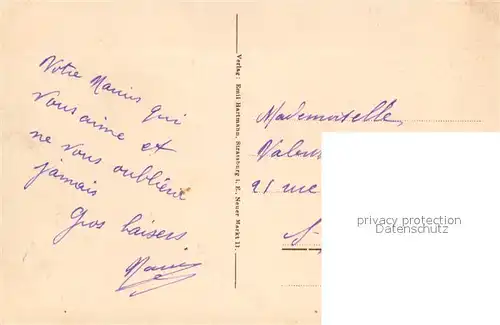 Votre Marius qui
vous aime et
ne vous oubliera
jamais
Gros baisers
Verlag: Emil Hartmann, Strassburg i. E., Neuer Markt 11.
Mademoiselle
21 rue
privacy protection
privacy protection